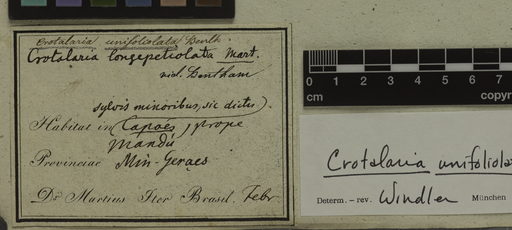 Crotalaria unifoliolata Benth.
Crotalaria longepetiolata Mart.
vid. Bentham
sylvis minoribus, sic dictis).
Habitat in (Capoës) prope
Mandú
Provinciae Min. Geraes
Dr. Martius Iter Brasil. Febr.
0 1 2 3 4 5
cm copy
Crotalaria unifoliola
Determ. – rev. Windler München